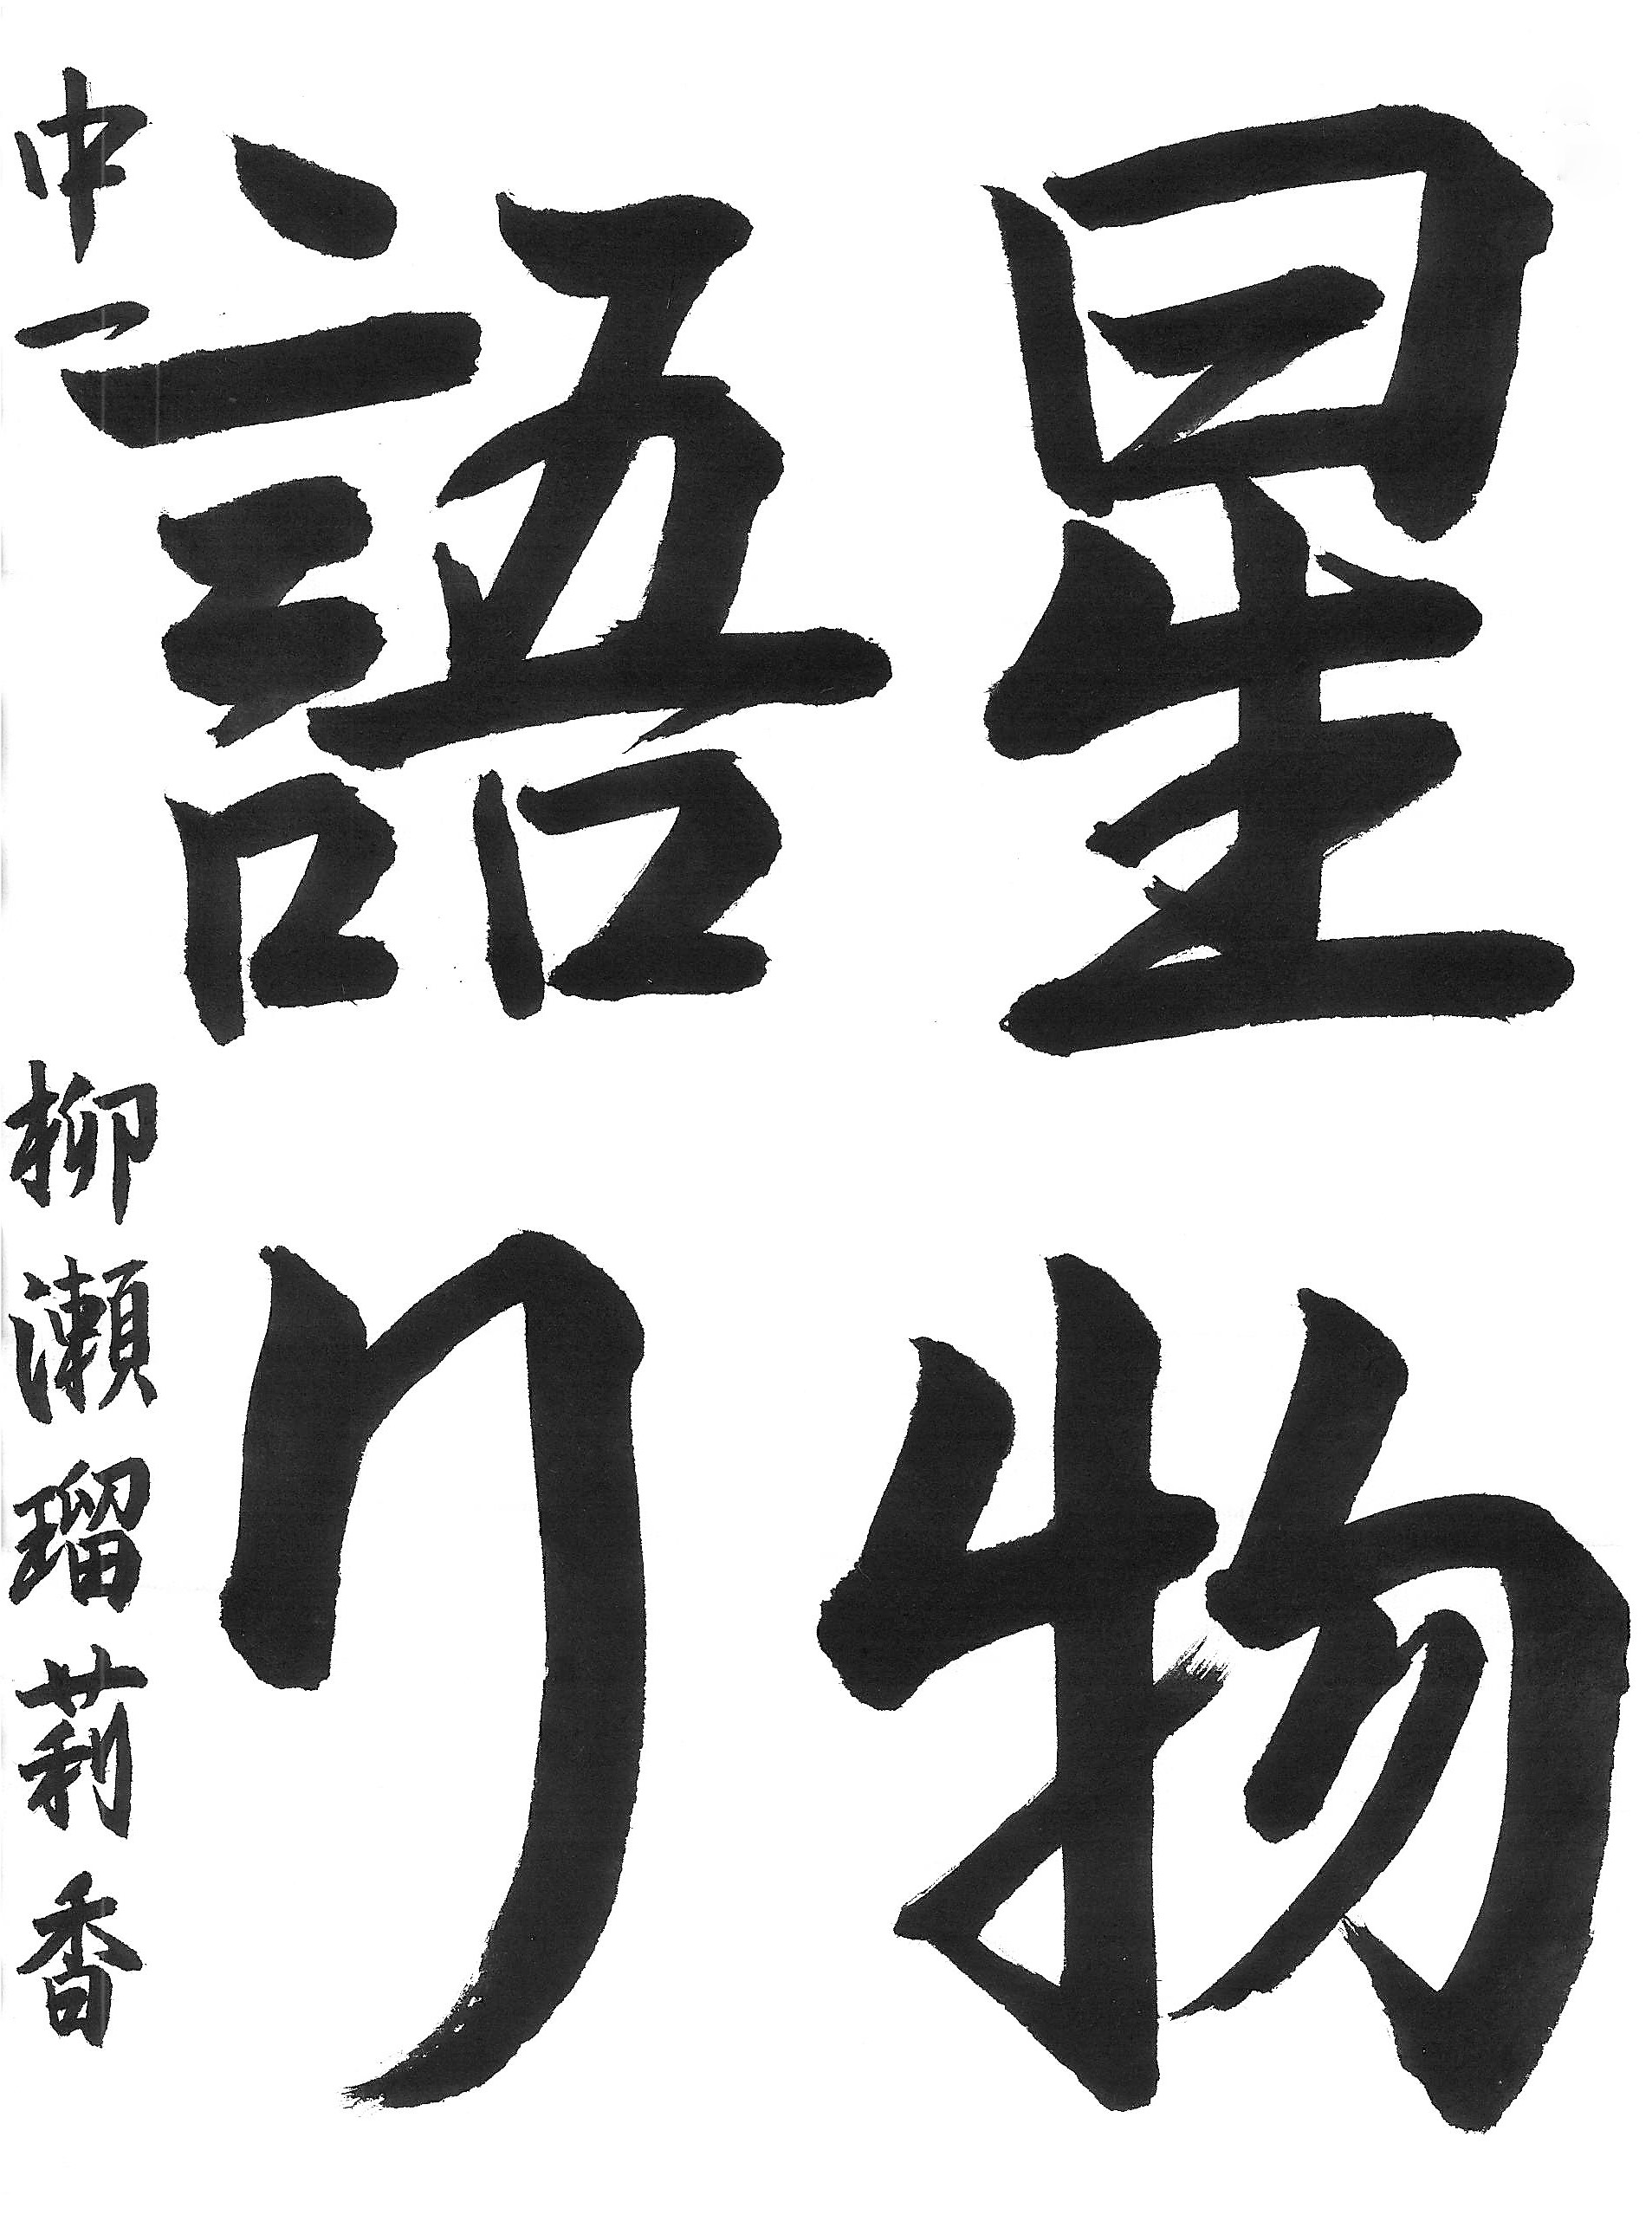 星物
語り
中一 柳瀬瑠莉香